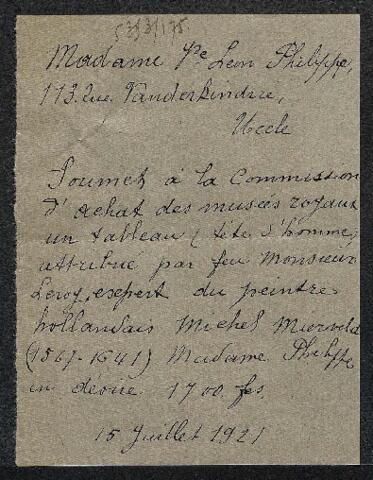 5333/175.
Madame Vve Léon Philippe,
113. rue Vanderkindere,
Uccle
Soumet à la Commission
d'achat des musées royaux
un tableau (tête d'homme)
attribué par feu Monsieur
Leroy, exepert du peintre
hollandais Michel Mierveld
(1567-1641) Madame Philippe
en désire 1700 frs.
15 Juillet 1921